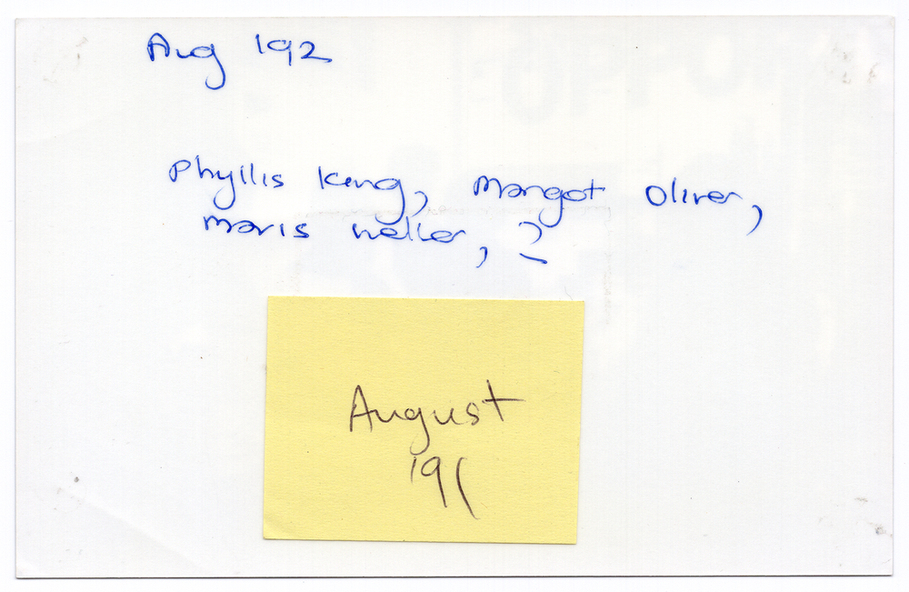 Aug '92
Phyllis King, Margot Oliver,
Mavis Weller, ?
August
'91